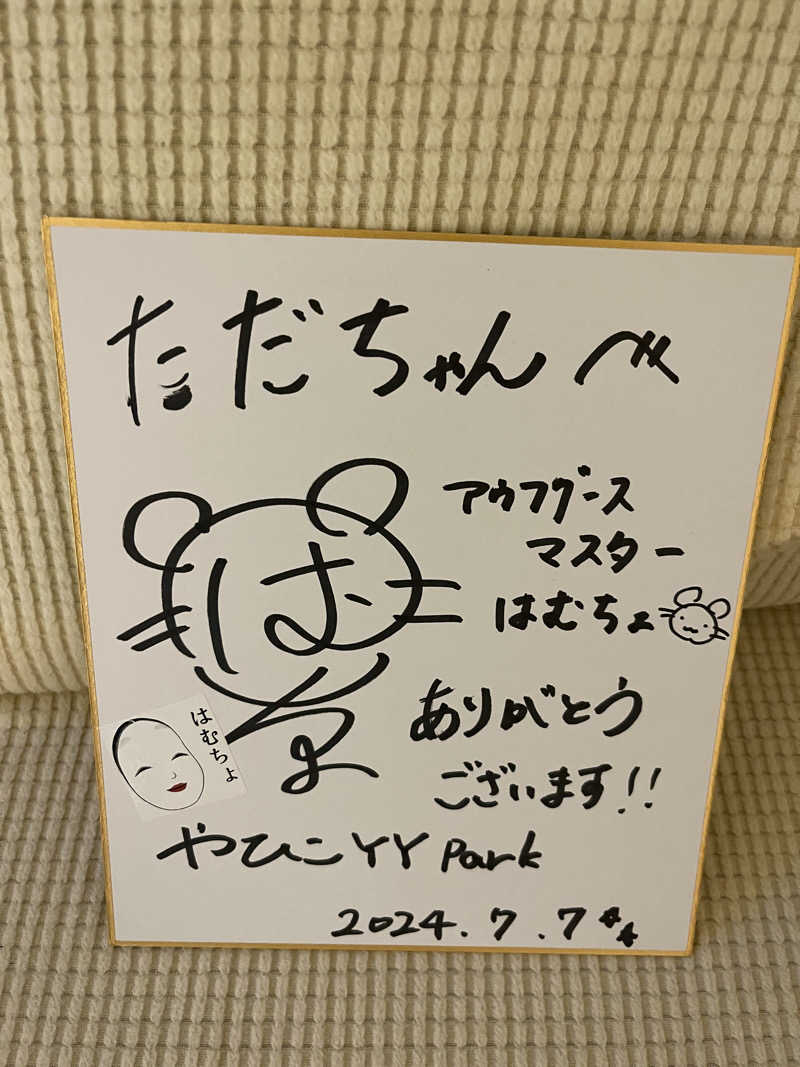 ただちゃんへ
アウフグース
マスター
はむちょ
はむちょ
ありがとう
ございます!!
はむちょ
やひこYY Park
2024.7.7